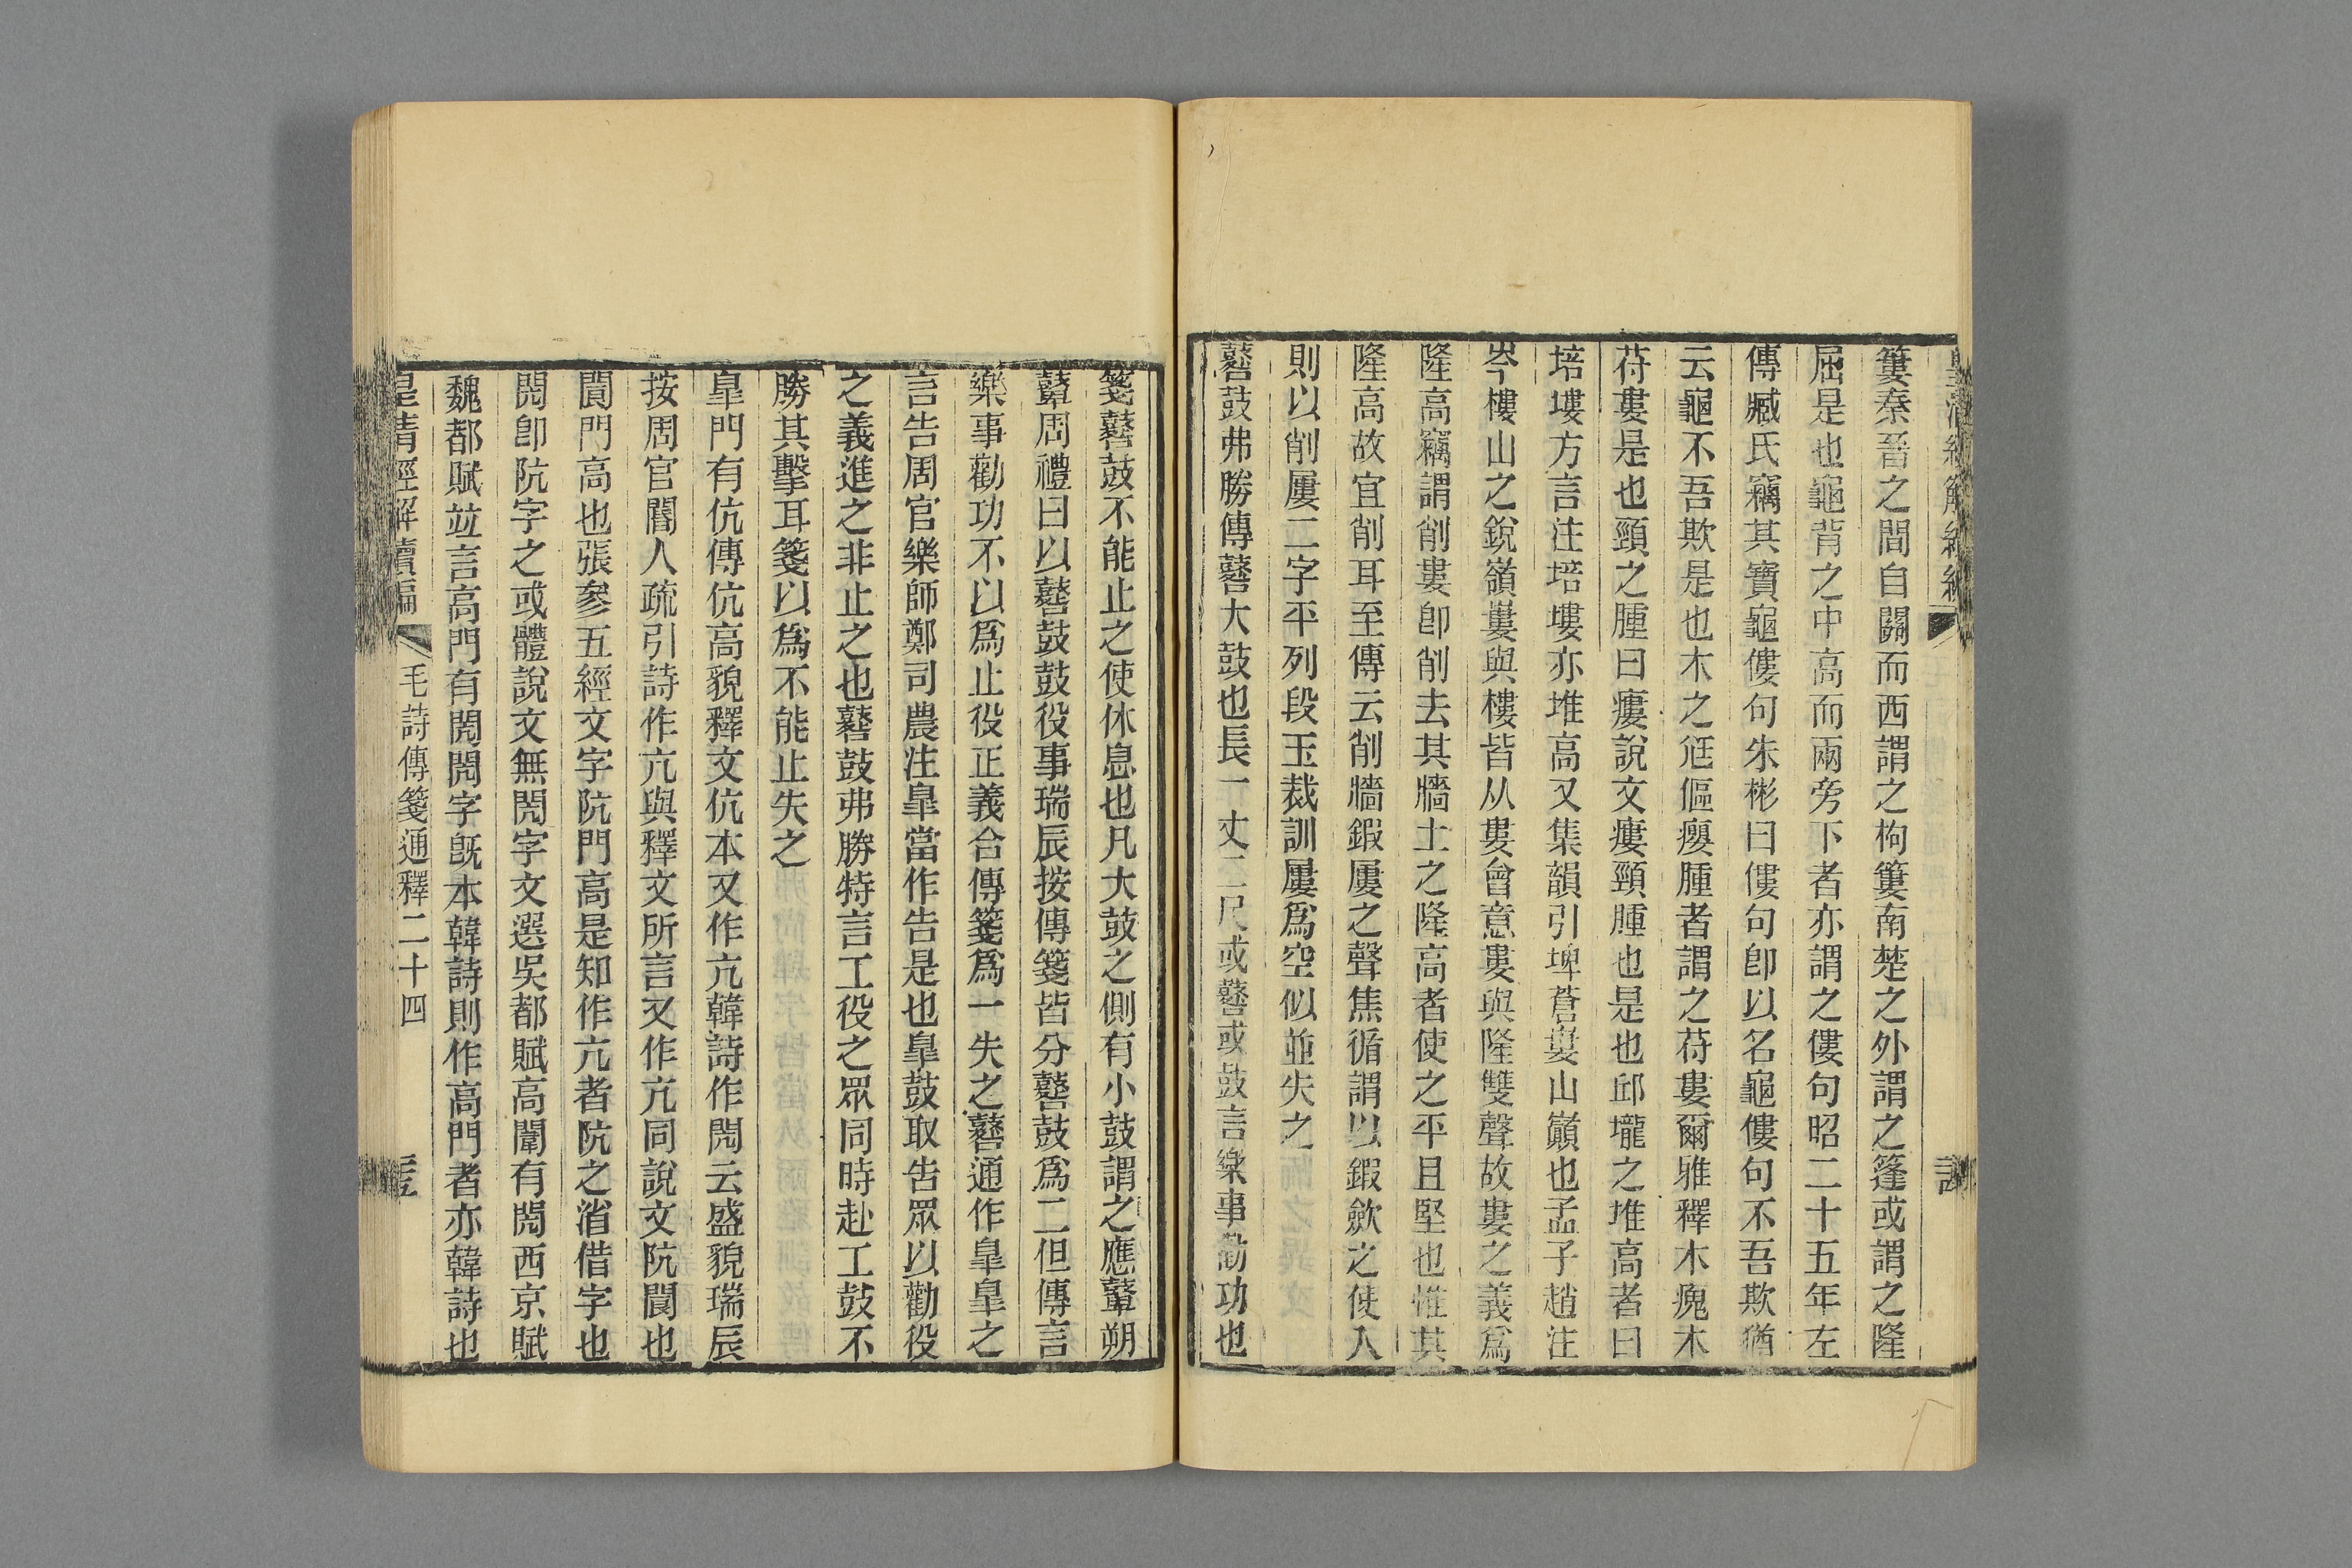 簍秦晉之間自關而西謂之枸簍南楚之外謂之篷或謂之隆
屈是也龜背之中高而兩旁下者亦謂之僂句昭二十五年左
傳臧氏竊其寶龜僂句朱彬曰僂句卽以名龜僂句不吾欺猶
云龜不吾欺是也木之尫傴癭腫者謂之苻婁爾雅釋木瘣木
苻婁是也頸之腫曰瘻說文瘻頸腫也是也邱壠之堆高者曰
培塿方言注培塿亦堆高又集韻引埤蒼塿山巔也孟子趙注
岑樓山之銳嶺嶁與樓皆从婁會意婁與隆雙聲故婁之義爲
隆高竊謂削婁卽削去其牆土之隆高者使之平且堅也惟其
隆高故宜削耳至傳云削牆鍜屢之聲焦循謂以鍜斂之使入
則以削屢二字平列段玉裁訓屢爲空似並失之
鼛鼓弗勝傳鼛大鼓也長一丈二尺或鼛或鼓言樂事勸功也
箋鼛鼓不能止之使休息也凡大鼓之側有小鼓謂之應鼙朔
鼙周禮曰以鼛鼓鼓役事瑞辰按傳箋皆分鼛鼓爲二但傳言
樂事勸功不以爲止役正義合傳箋爲一失之鼛通作皐皐之
言告周官樂師鄭司農注皐當作告是也皐鼓取告眾以勸役
之義進之非止之也鼛鼓弗勝特言工役之眾同時赴工鼓不
勝其擊耳箋以爲不能止失之
皐門有伉傳伉高貌釋文伉本又作亢韓詩作閌云盛貌瑞辰
按周官閽人疏引詩作亢與釋文所言又作亢同說文阬閬也
閬門高也張參五經文字阬門高是知作亢者阬之渻借字也
閌卽阬字之或體說文無閌字文選吳都賦高闈有閌西京賦
魏都賦竝言高門有閌閌字旣本韓詩則作高門者亦韓詩也
皇淸經解續編
毛詩傳箋通釋二十四